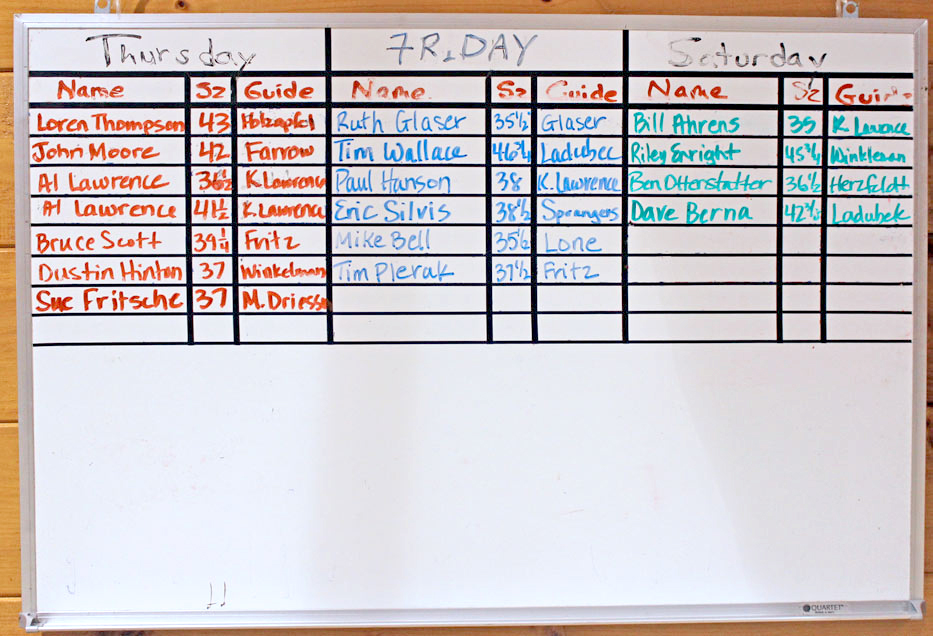 Thursday 7RIDAY Saturday
Name Sz Guide Name Sz Guide Name Sz Guide
Loren Thompson 43 Holzapfel Ruth Glaser 35 1/2 Glaser Bill Ahrens 35 K. Lawrence
John Moore 42 Farrow Tim Wallace 46 3/4 Ladubec Riley Enright 45 3/4 Winkleman
Al Lawrence 36 1/2 K Lawrence Paul Hanson 38 K. Lawrence Ben Otterstatter 36 1/2 Herzfeldt
Al Lawrence 41 1/2 K. Lawrence Eric Silvis 38 1/2 Sprangers Dave Berna 42 3/4 Ladubek
Bruce Scott 39 1/4 Fritz Mike Bell 35 1/2 Lone
Dustin Hinton 37 Winkelman Tim Pierak 37 1/2 Fritz
Sue Fritsche 37 M. Driessen
QUARTET